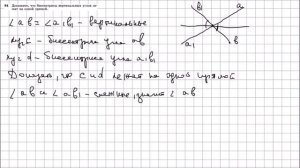 94. Докажите, что биссектрисы вертикальных углов лежат на одной прямой.
∠ab = ∠a₁b₁ - вертикальные
луч c - биссектриса угла ab
луч d - биссектриса угла a₁b₁
Доказать, что c и d лежат на одной прямой
∠ab и ∠ab₁ - смежные, значит ∠ab
a
b
a₁